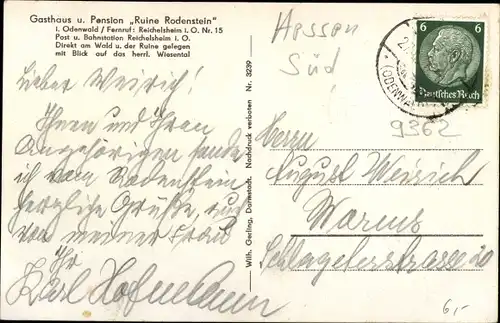 Gasthaus u. Pension „Ruine Rodenstein"
i. Odenwald / Fernruf: Reichelsheim i. O. Nr. 15
Post u. Bahnstation Reichelsheim i. O.
Direkt am Wald u. der Ruine gelegen
mit Blick auf das herrl. Wiesental
Lieber Weirich!
Ihnen und Ihren
Angehörigen sende
ich vom Rodenstein
herzliche Grüße, auch
von meiner Frau
Ihr
Karl Hofmann
Wilh. Gerling, Darmstadt. Nachdruck verboten Nr. 3239
Hessen
Süd
6 6
Deutsches Reich
(ODENWALD)
9362
Herrn
August Weirich
Worms
Schlageterstrasse 20
6,-